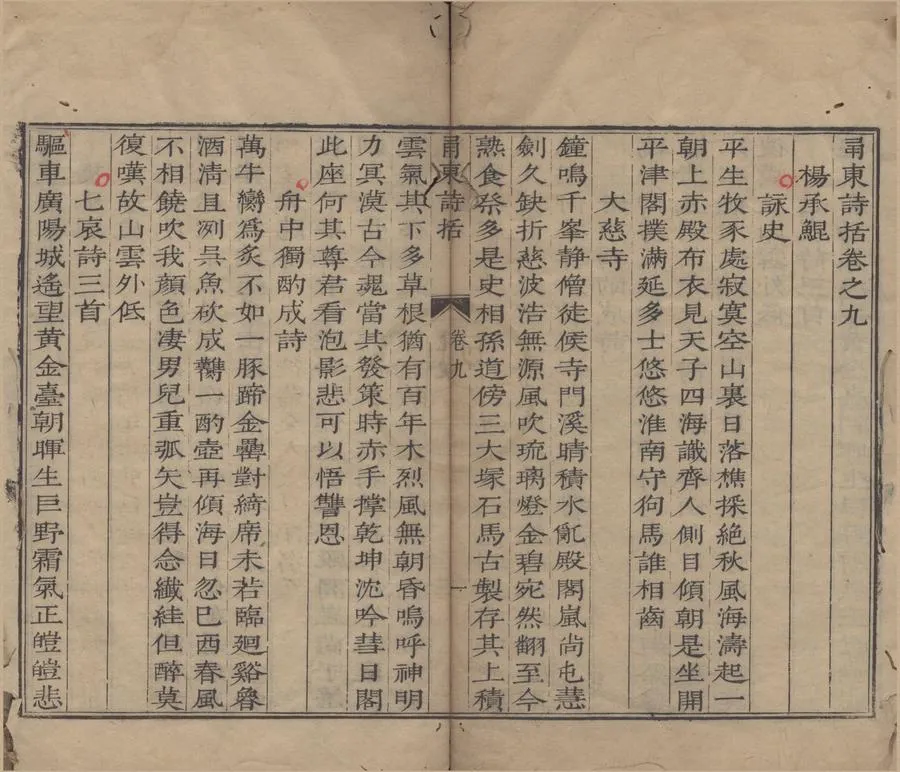 甬東詩括卷之九
楊承鯤
詠史
平生牧豕處寂寞空山裏日落樵採絶秋風海濤起一
朝上赤殿布衣見天子四海識齊人側目傾朝是坐開
平津閣撲滿延多士悠悠淮南守狗馬誰相齒
大慈寺
鐘鳴千峯静僧徒侯寺門溪晴積水亂殿閣嵐尚屯慧
劍久缺折慈波浩無源風吹琉璃燈金碧宛然翻至今
熟食祭多是史相孫道傍三大塚石馬古製存其上積
甬東詩括
卷九
一
雲氣其下多草根猶有百年木烈風無朝昏嗚呼神明
力冥漠古今魂當其發策時赤手撑乾坤沈吟彗日閣
此座何其尊君看泡影悲可以悟讐恩
舟中獨酌成詩
萬牛臠爲炙不如一豚蹄金罍對綺席未若臨廻谿魯
酒清且冽呉魚砍成臡一酌壺再傾海日忽巳西春風
不相饒吹我顔色凄男兒重弧矢豈得念纖絓但醉莫
復嘆故山雲外低
七哀詩三首
驅車廣陽城遙望黄金臺朝暉生巨野霜氣正皚皚悲